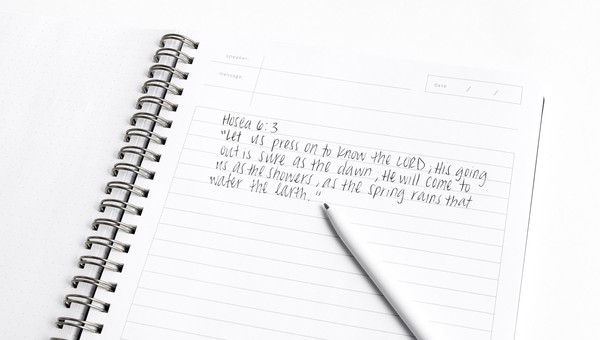 speaker:
message:
date / /
Hosea 6:3
"Let us press on to know the LORD, His going
out is sure as the dawn, He will come to
us as the showers, as the spring rains that
water the earth."